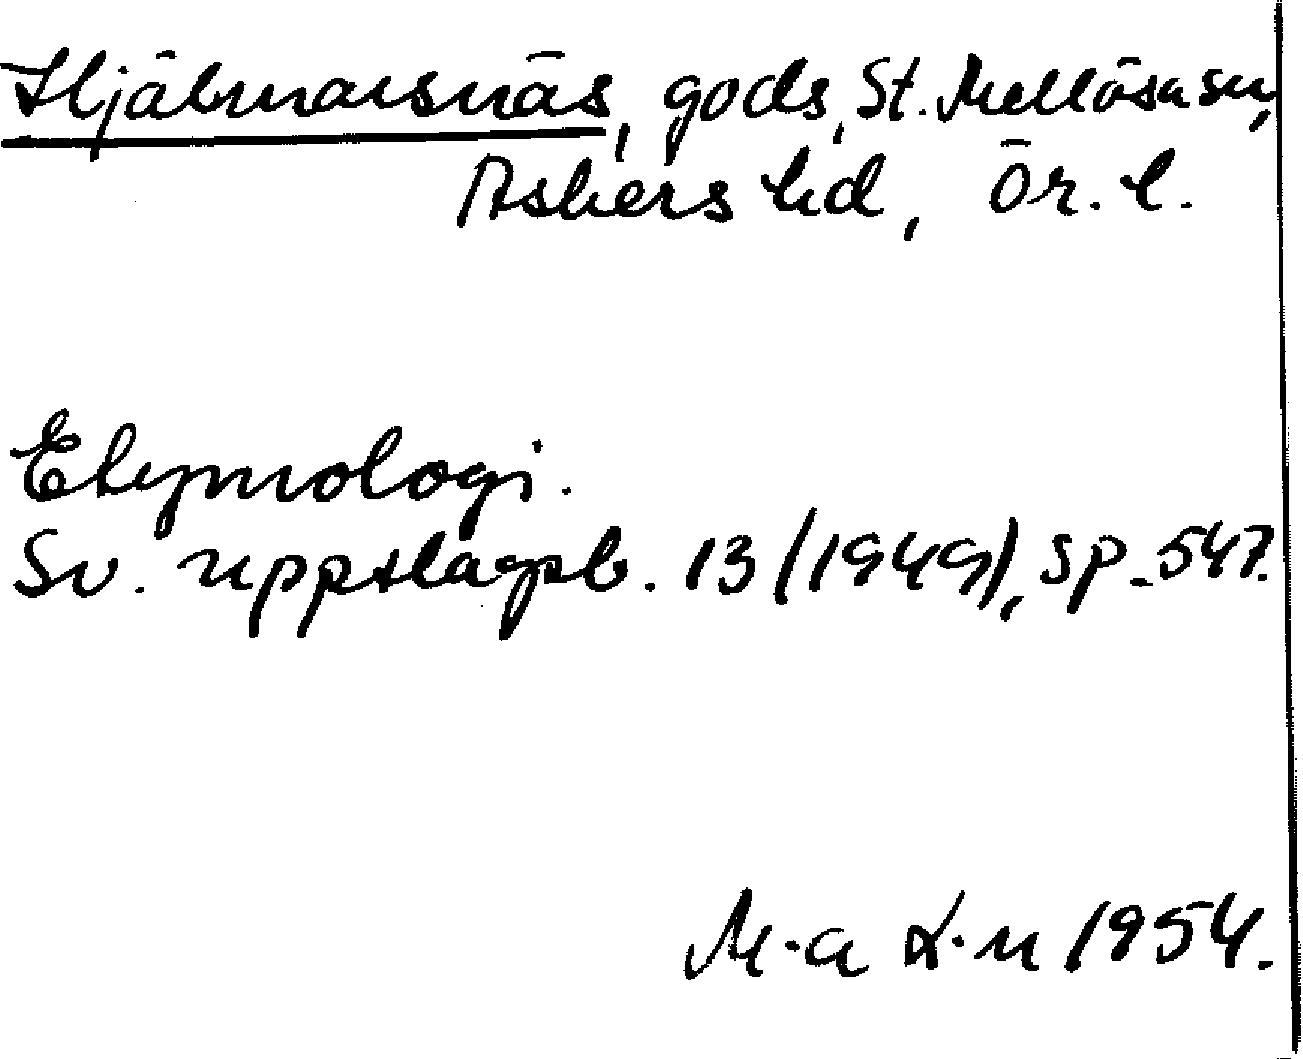 Hjälmarsnäs, gods, St. Mellösa sn,
Askers hd, Ör. l.
Etymologi.
Sv. uppslagsb. 13 (1949), sp. 547.
M-a L-n 1954.